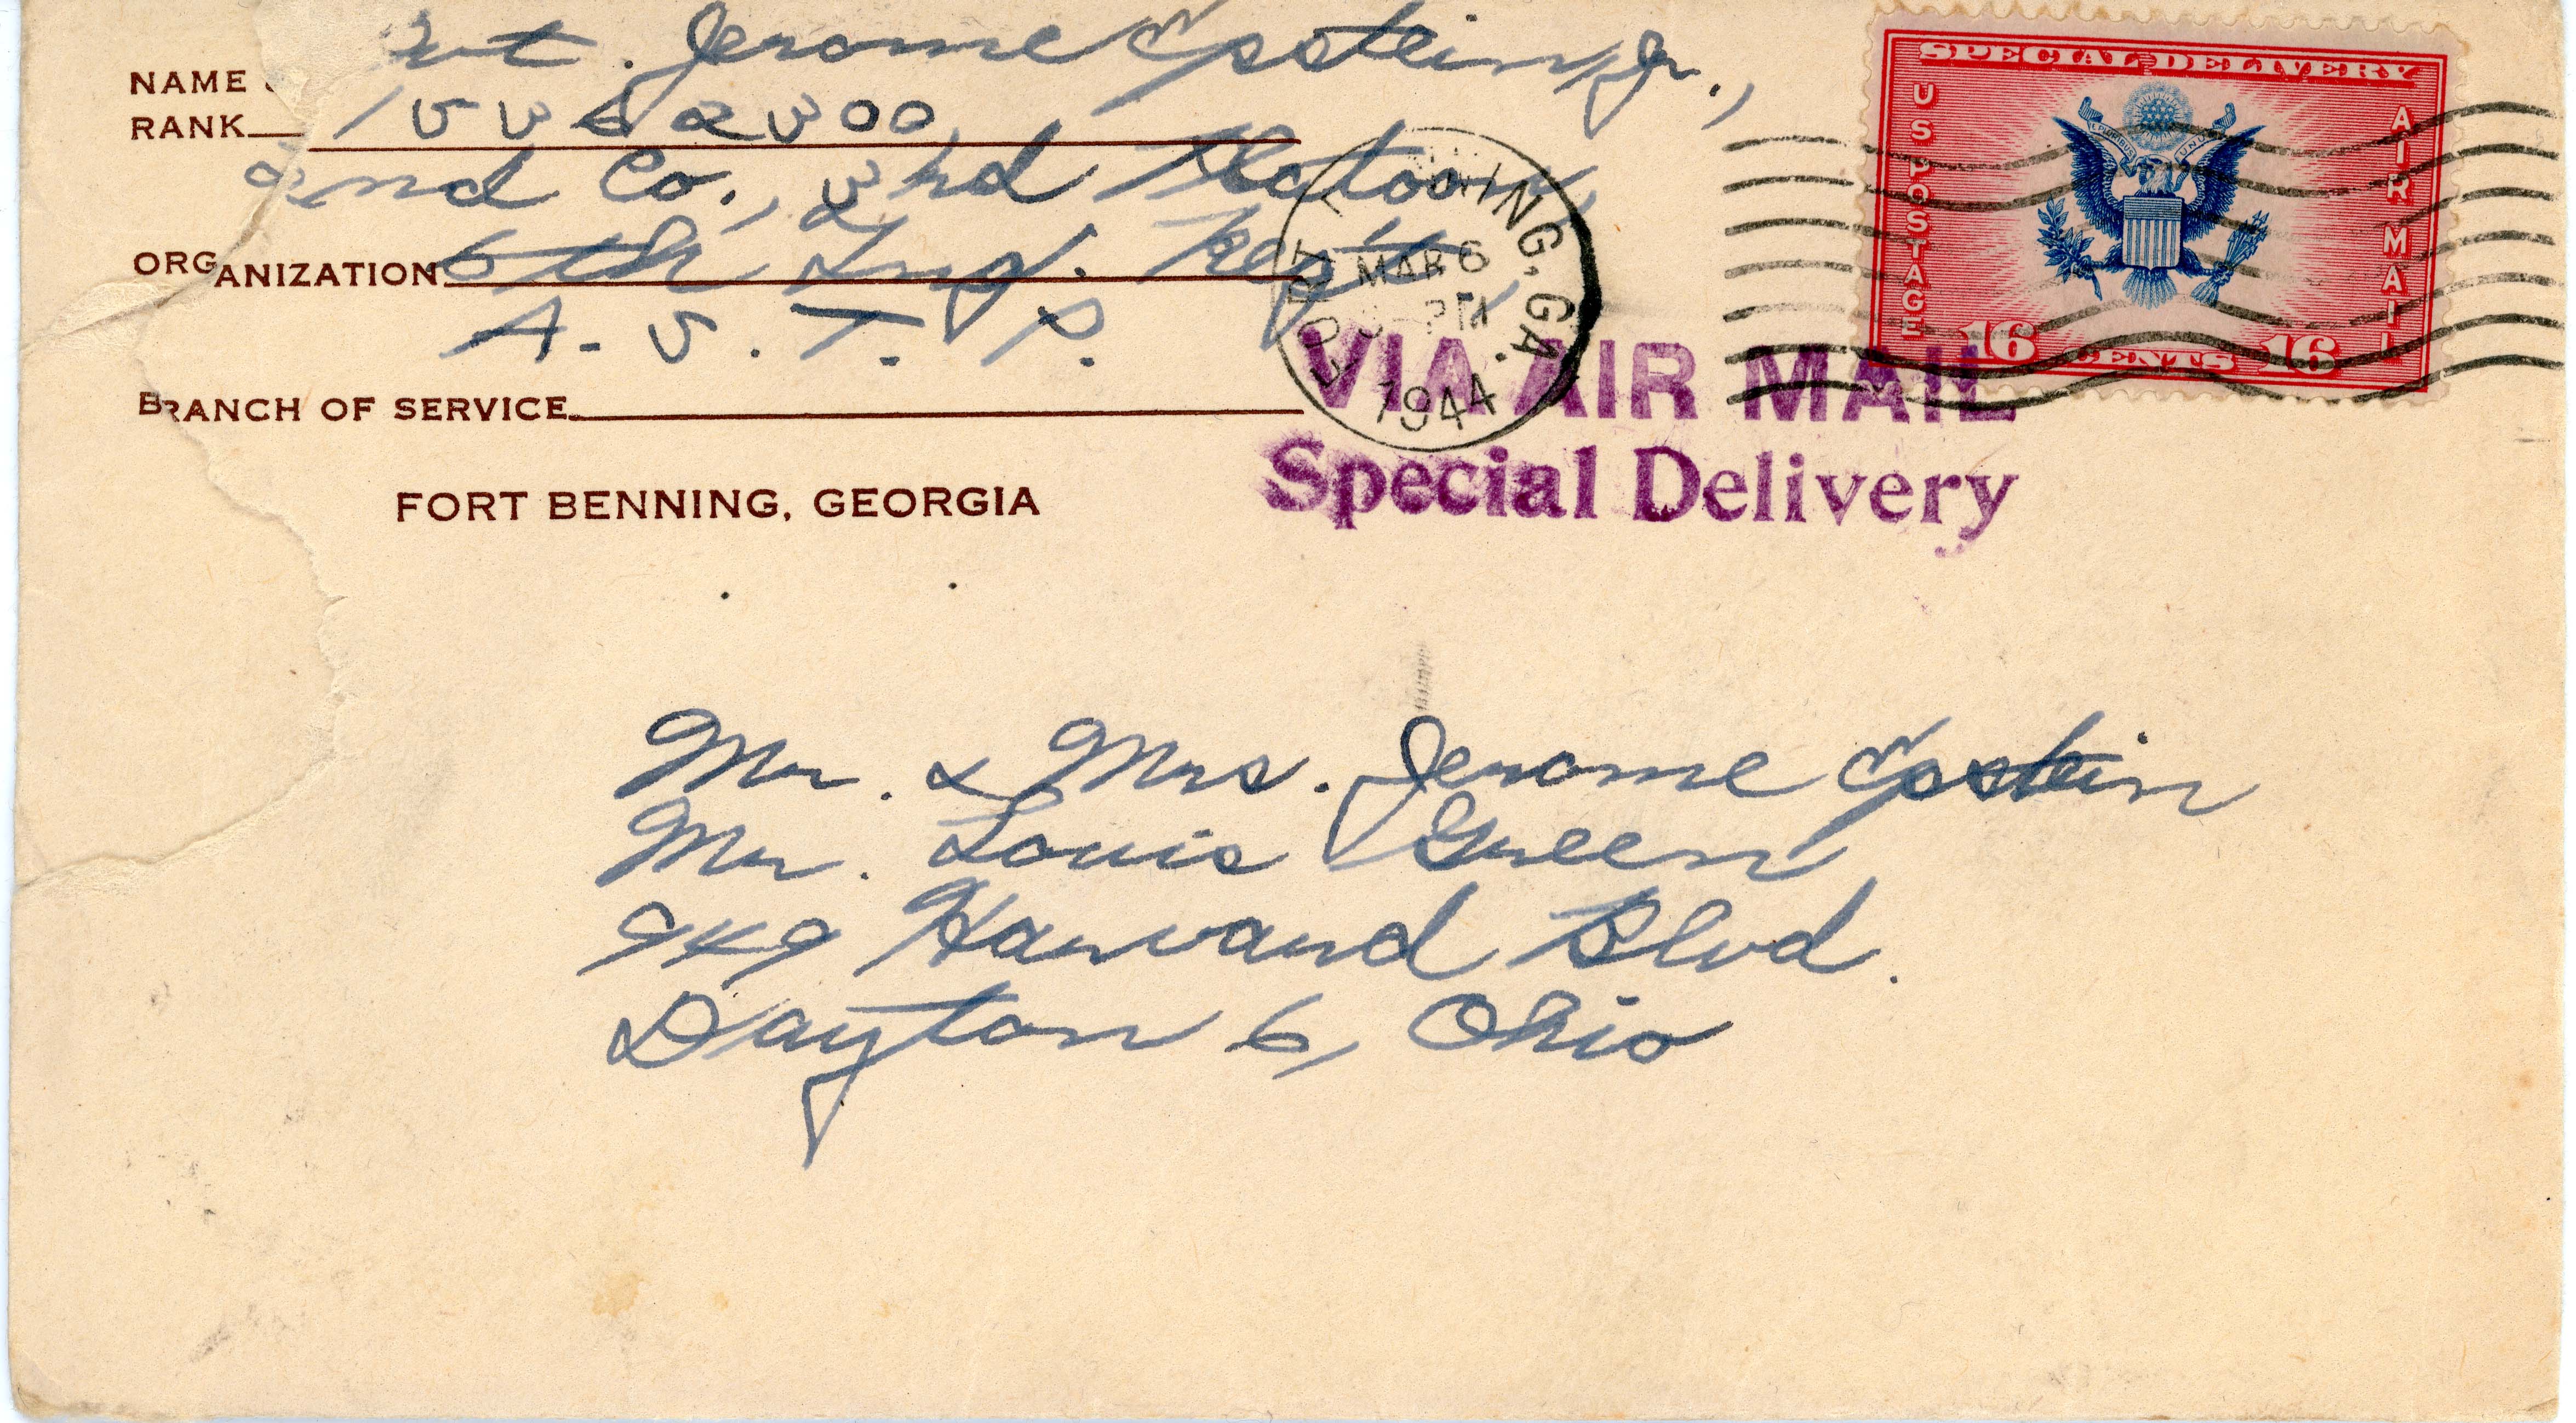 NAME
Pvt. Jerome Epstein, Jr.,
RANK 15362300,
2nd Co., 3rd Platoon,
ORGANIZATION 6th Tng. Reg't,
A.S.T.P.
BRANCH OF SERVICE
FORT BENNING, GEORGIA
FORT BENNING, GA.
MAR 6
PM
1944
SPECIAL DELIVERY
US POSTAGE
AIR MAIL
E PLURIBUS UNUM
16 CENTS 16
VIA AIR MAIL
Special Delivery
Mr. & Mrs. Jerome Epstein
Mr. Louis Green
949 Harvard Blvd.
Dayton 6, Ohio